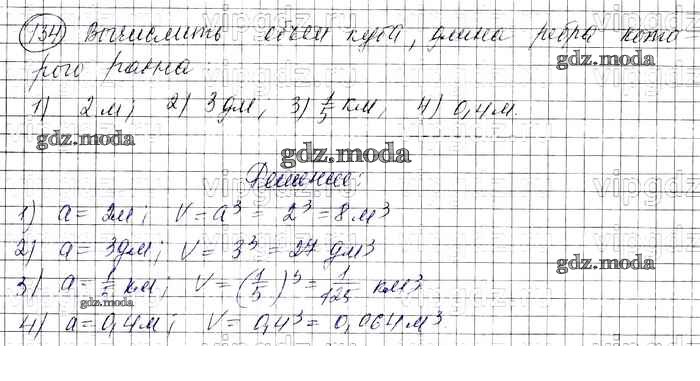 134) Вычислить объем куба, длина ребра кото
рого равна
1) 2 м; 2) 3 дм; 3) 1/5 км; 4) 0,4 м.
Решение:
1) a = 2м; V = a³ = 2³ = 8 м³
2) a = 3дм; V = 3³ = 27 дм³
3) a = 1/5 км; V = (1/5)³ = 1/125 км³
4) a = 0,4м; V = 0,4³ = 0,064 м³
gdz.moda
gdz.moda
gdz.moda
gdz.moda
gdz.moda